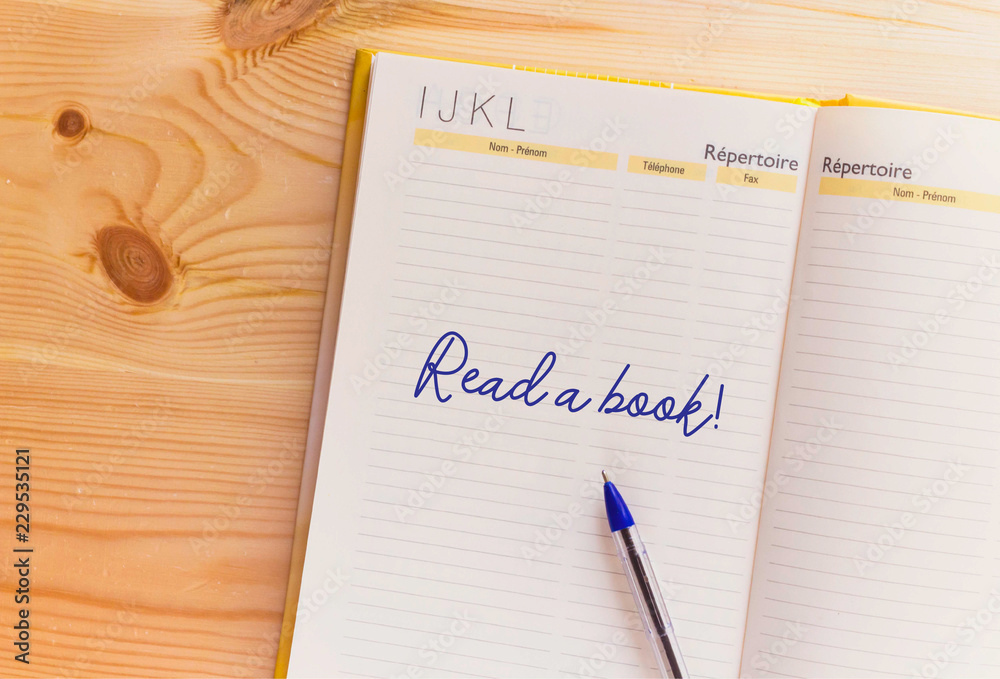 I J K L
Nom - Prénom
Téléphone
Répertoire
Fax
Répertoire
Nom - Prénom
Read a book!
Adobe Stock | #229535121